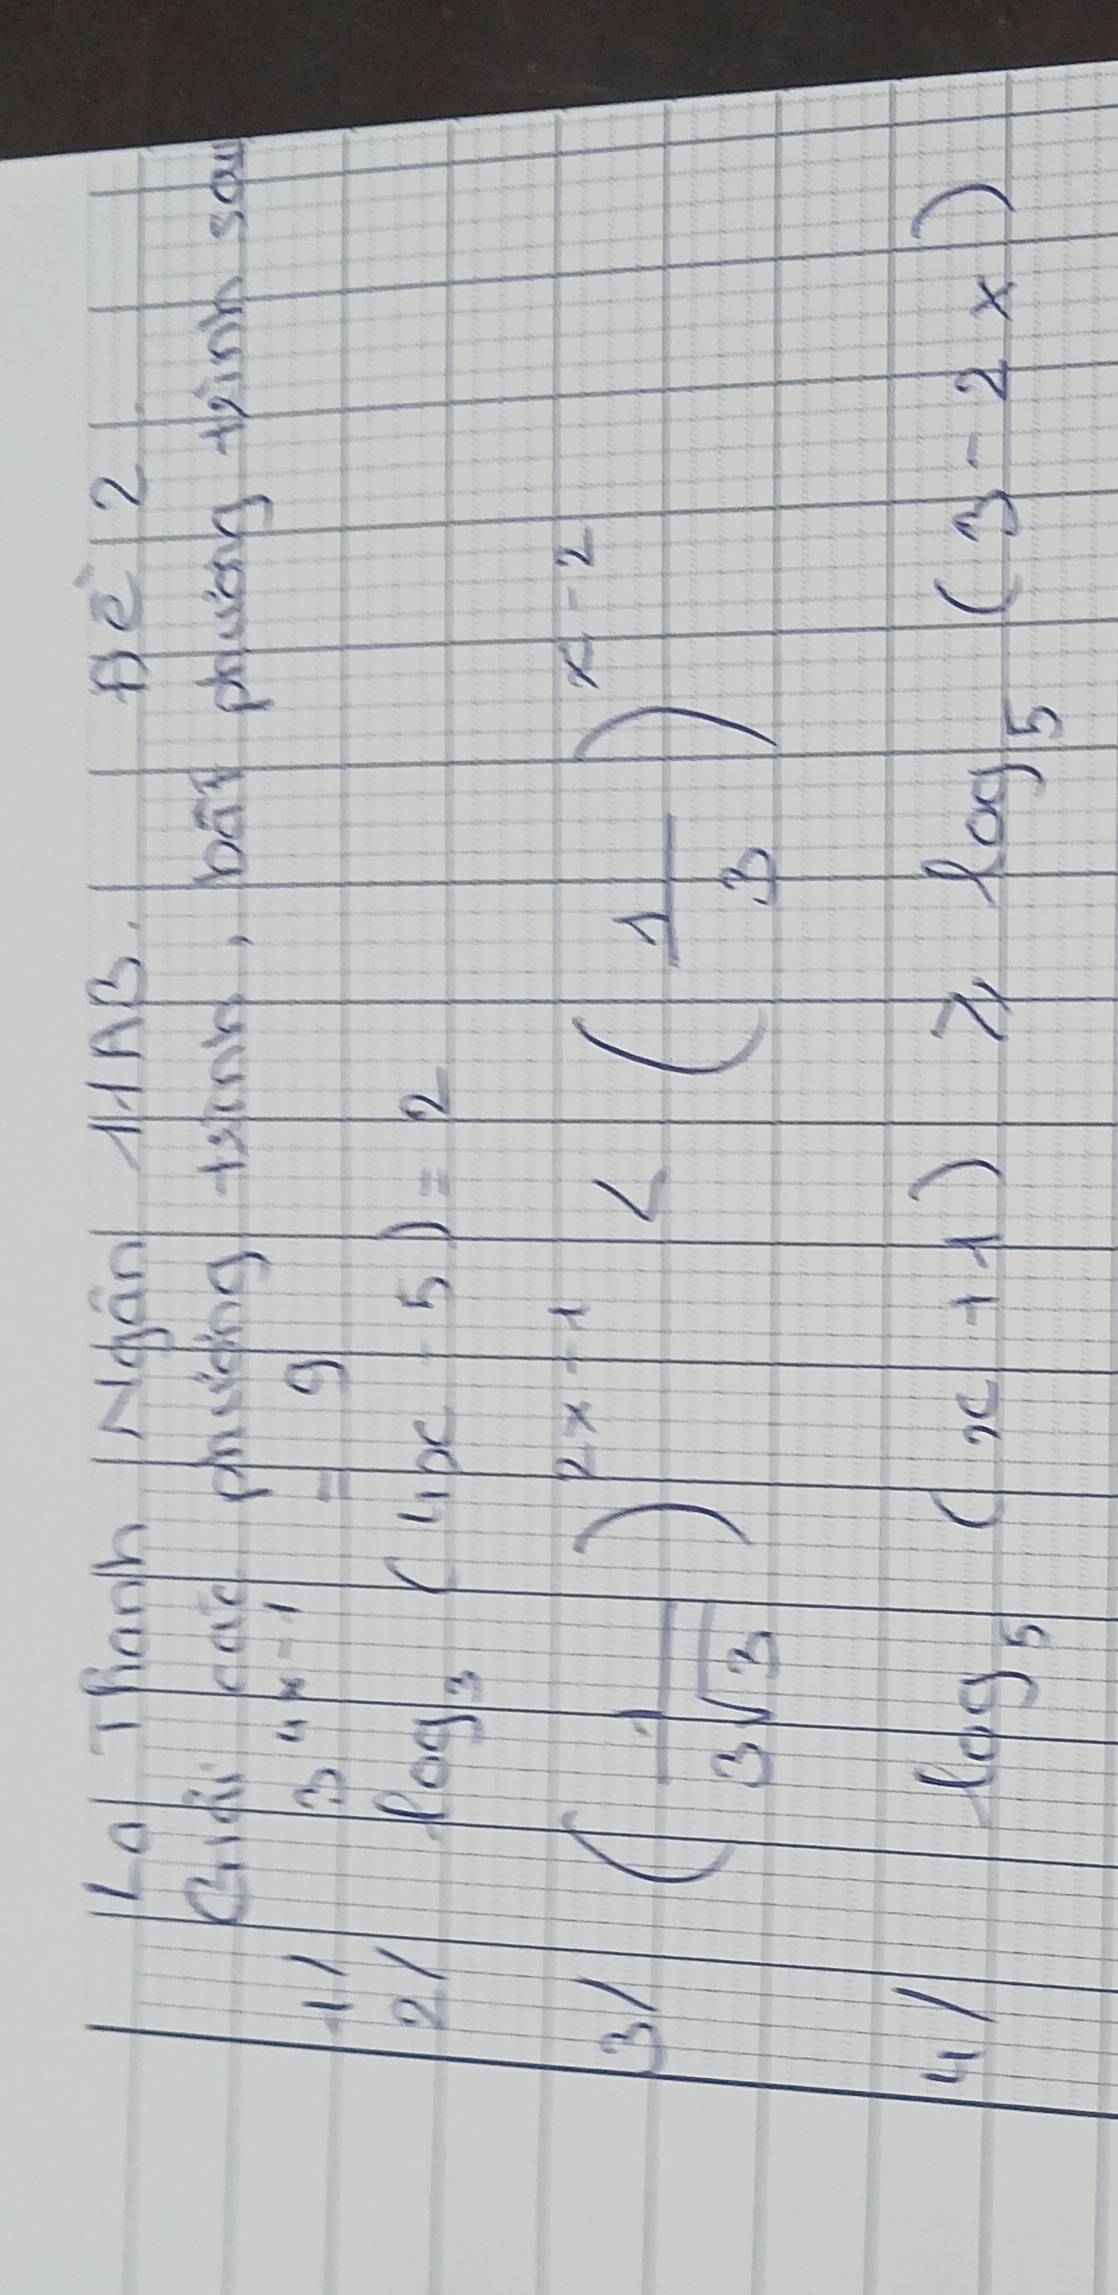 Lò Thanh Ngân 11AB. Đề 2
Giải các phương trình, bất phương trình sau
1/ 3^{4x-1} = 9
2/ log_3 (4x - 5) = 2
3/ (1/(3√3))^{2x-1} < (1/3)^{x-2}
4/ log_5 (x + 1) ≥ log_5 (3 - 2x)